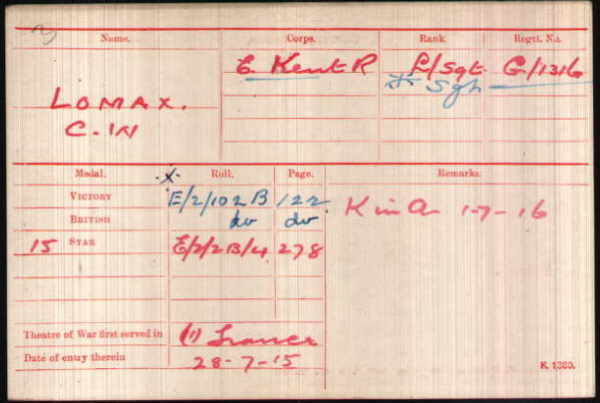 Name. Corps. Rank. Regtl. No.
LOMAX. E. Kent R L/Sgt. G/1316
C. W * Sgt
Medal. -X- Roll. Page. Remarks.
VICTORY E/2/102 B 122. K in a 1-7-16
BRITISH do do
15 STAR E/2/2B/4 278
Theatre of War first served in (1) France
Date of entry therein 28-7-15
K 1380.